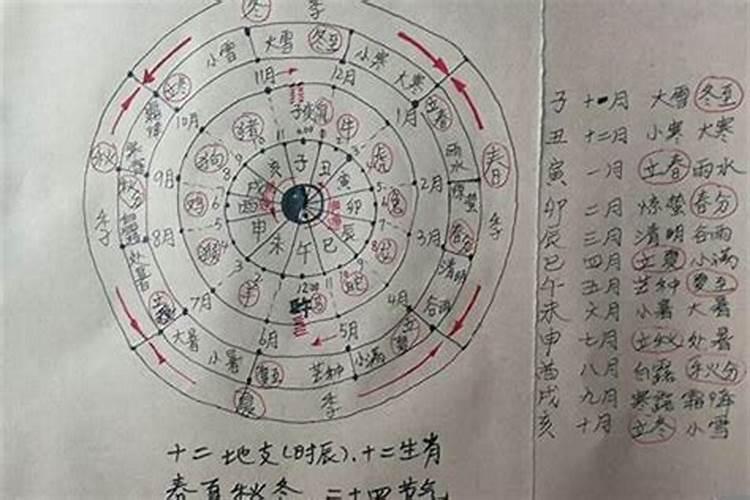 冬 季
小雪 大雪 冬至 小寒 大寒
立冬 11月 12月 1月 立春
10月 子 鼠 牛
猪 虎 雨水
秋 狗 亥 子 丑 寅 2月 春
9月 戌
秋分 鸡 酉 卯 兔 惊蛰
季 申 辰 季
8月 猴 未 午 巳 3月 春分
处暑 清明
羊 12:00 蛇
立秋 7月 午 马 4月 谷雨
大暑 6月 5月 立夏
小暑 夏至 芒种 小满
夏 季
子 十一月 大雪 冬至
丑 十二月 小寒 大寒
寅 一月 立春 雨水
卯 二月 惊蛰 春分
辰 三月 清明 谷雨
巳 四月 立夏 小满
午 五月 芒种 夏至
未 六月 小暑 大暑
申 七月 立秋 处暑
酉 八月 白露 秋分
戌 九月 寒露 霜降
亥 十月 立冬 小雪
十二地支(时辰)、十二生肖
春夏秋冬 二十四节气